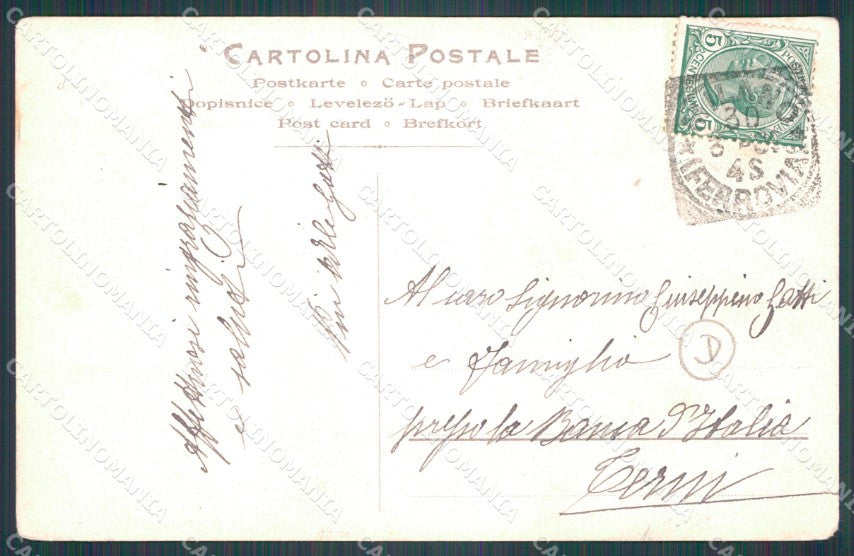 CARTOLINA POSTALE
Postkarte ∘ Carte postale
Dopisnice ∘ Levelező-Lap ∘ Briefkaart
Post card ∘ Brefkort
Affettuosi ringraziamenti
e saluti
Al caro Signorino Giuseppino Gatti
e Famiglia
presso la Banca d'Italia
Terni
D
5
(FERROVIA)
CARTOLINOMANIA